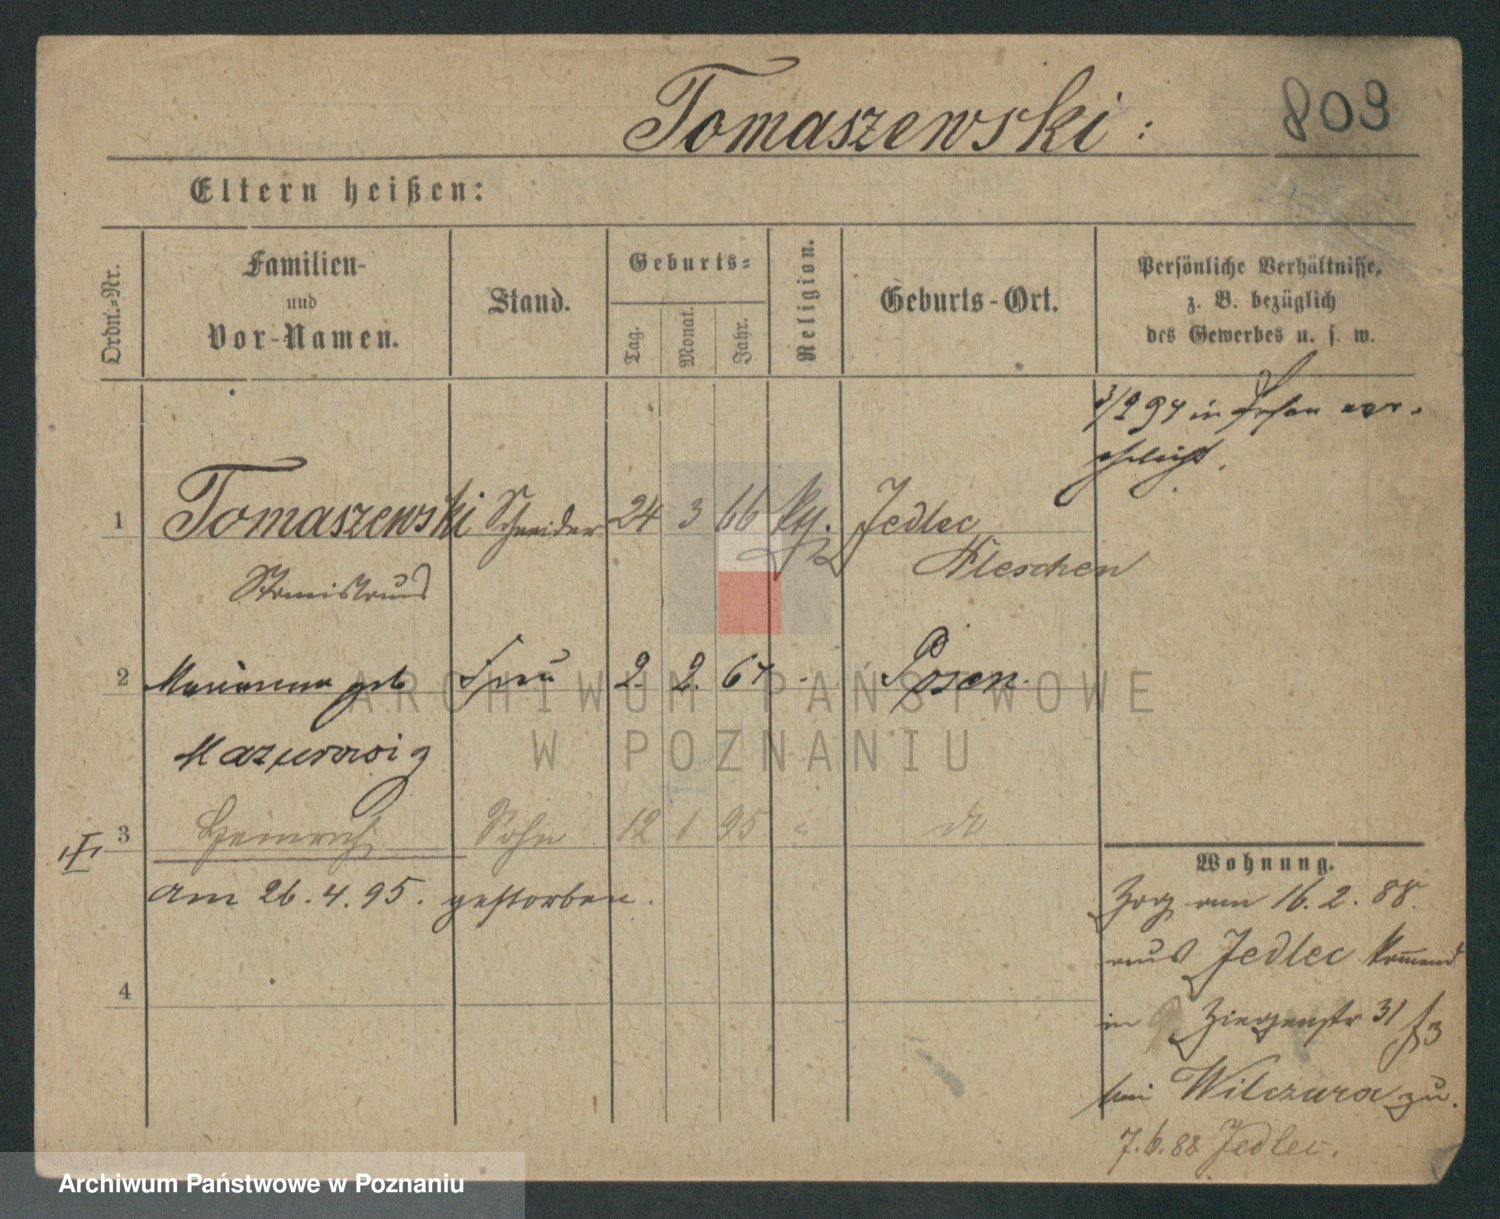 Tomaszewski:
803
Eltern heißen:
Ordn.-Nr.
Familien-
und
Vor-Namen.
Stand.
Geburts-
Tag.
Monat.
Jahr.
Religion.
Geburts-Ort.
Persönliche Verhältnisse,
z. B. bezüglich
des Gewerbes u. s. w.
3/2 94 in Posen ver-
ehelicht.
1 Tomaszewski Schneider 24 3 66 kth. Jedlec
Pleschen
Stanislaus
2 Marianna geb Frau 2. 2. 67 Posen.
3 Heinrich Sohn 12 1 95 do
am 26.4.95. gestorben.
4
Wohnung.
Zog am 16.2.88.
aus Jedlec kommend
in Ziegenstr 31
bei Wilczura zu.
7.6.88 Jedlec.
ARCHIWUM PAŃSTWOWE
W POZNANIU
Archiwum Państwowe w Poznaniu